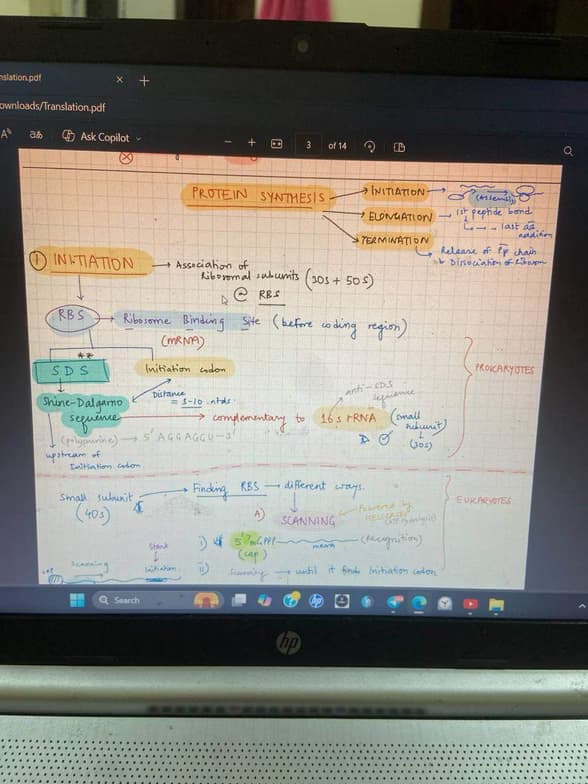 nslation.pdf
ownloads/Translation.pdf
Ask Copilot
3 of 14
PROTEIN SYNTHESIS
INITIATION
(Assembly)
ELONGATION → 1st peptide bond
last aa
addition
TERMINATION
Release of pp chain
Dissociation of Ribosom
① INITIATION → Association of
Ribosomal subunits (30S + 50S)
@ RBS
RBS → Ribosome Binding Site (before coding region)
(mRNA)
**
SDS
Initiation codon
Distance
= 5-10 ntds
Shine-Dalgarno
sequence → complementary to 16s rRNA (small
subunit)
(30s)
anti-SDS
sequence
(polypurine) → 5' AGGAGGU-3'
upstream of
Initiation codon
PROKARYOTES
Small subunit
(40s)
Finding RBS → different ways.
EUKARYOTES
A) SCANNING
Powered by
i) 5' 7mGppp
mRNA
(Recognition)
(cap)
Start
ii) Scanning → until it finds Initiation codon
Scanning
Initiation
Search
hp